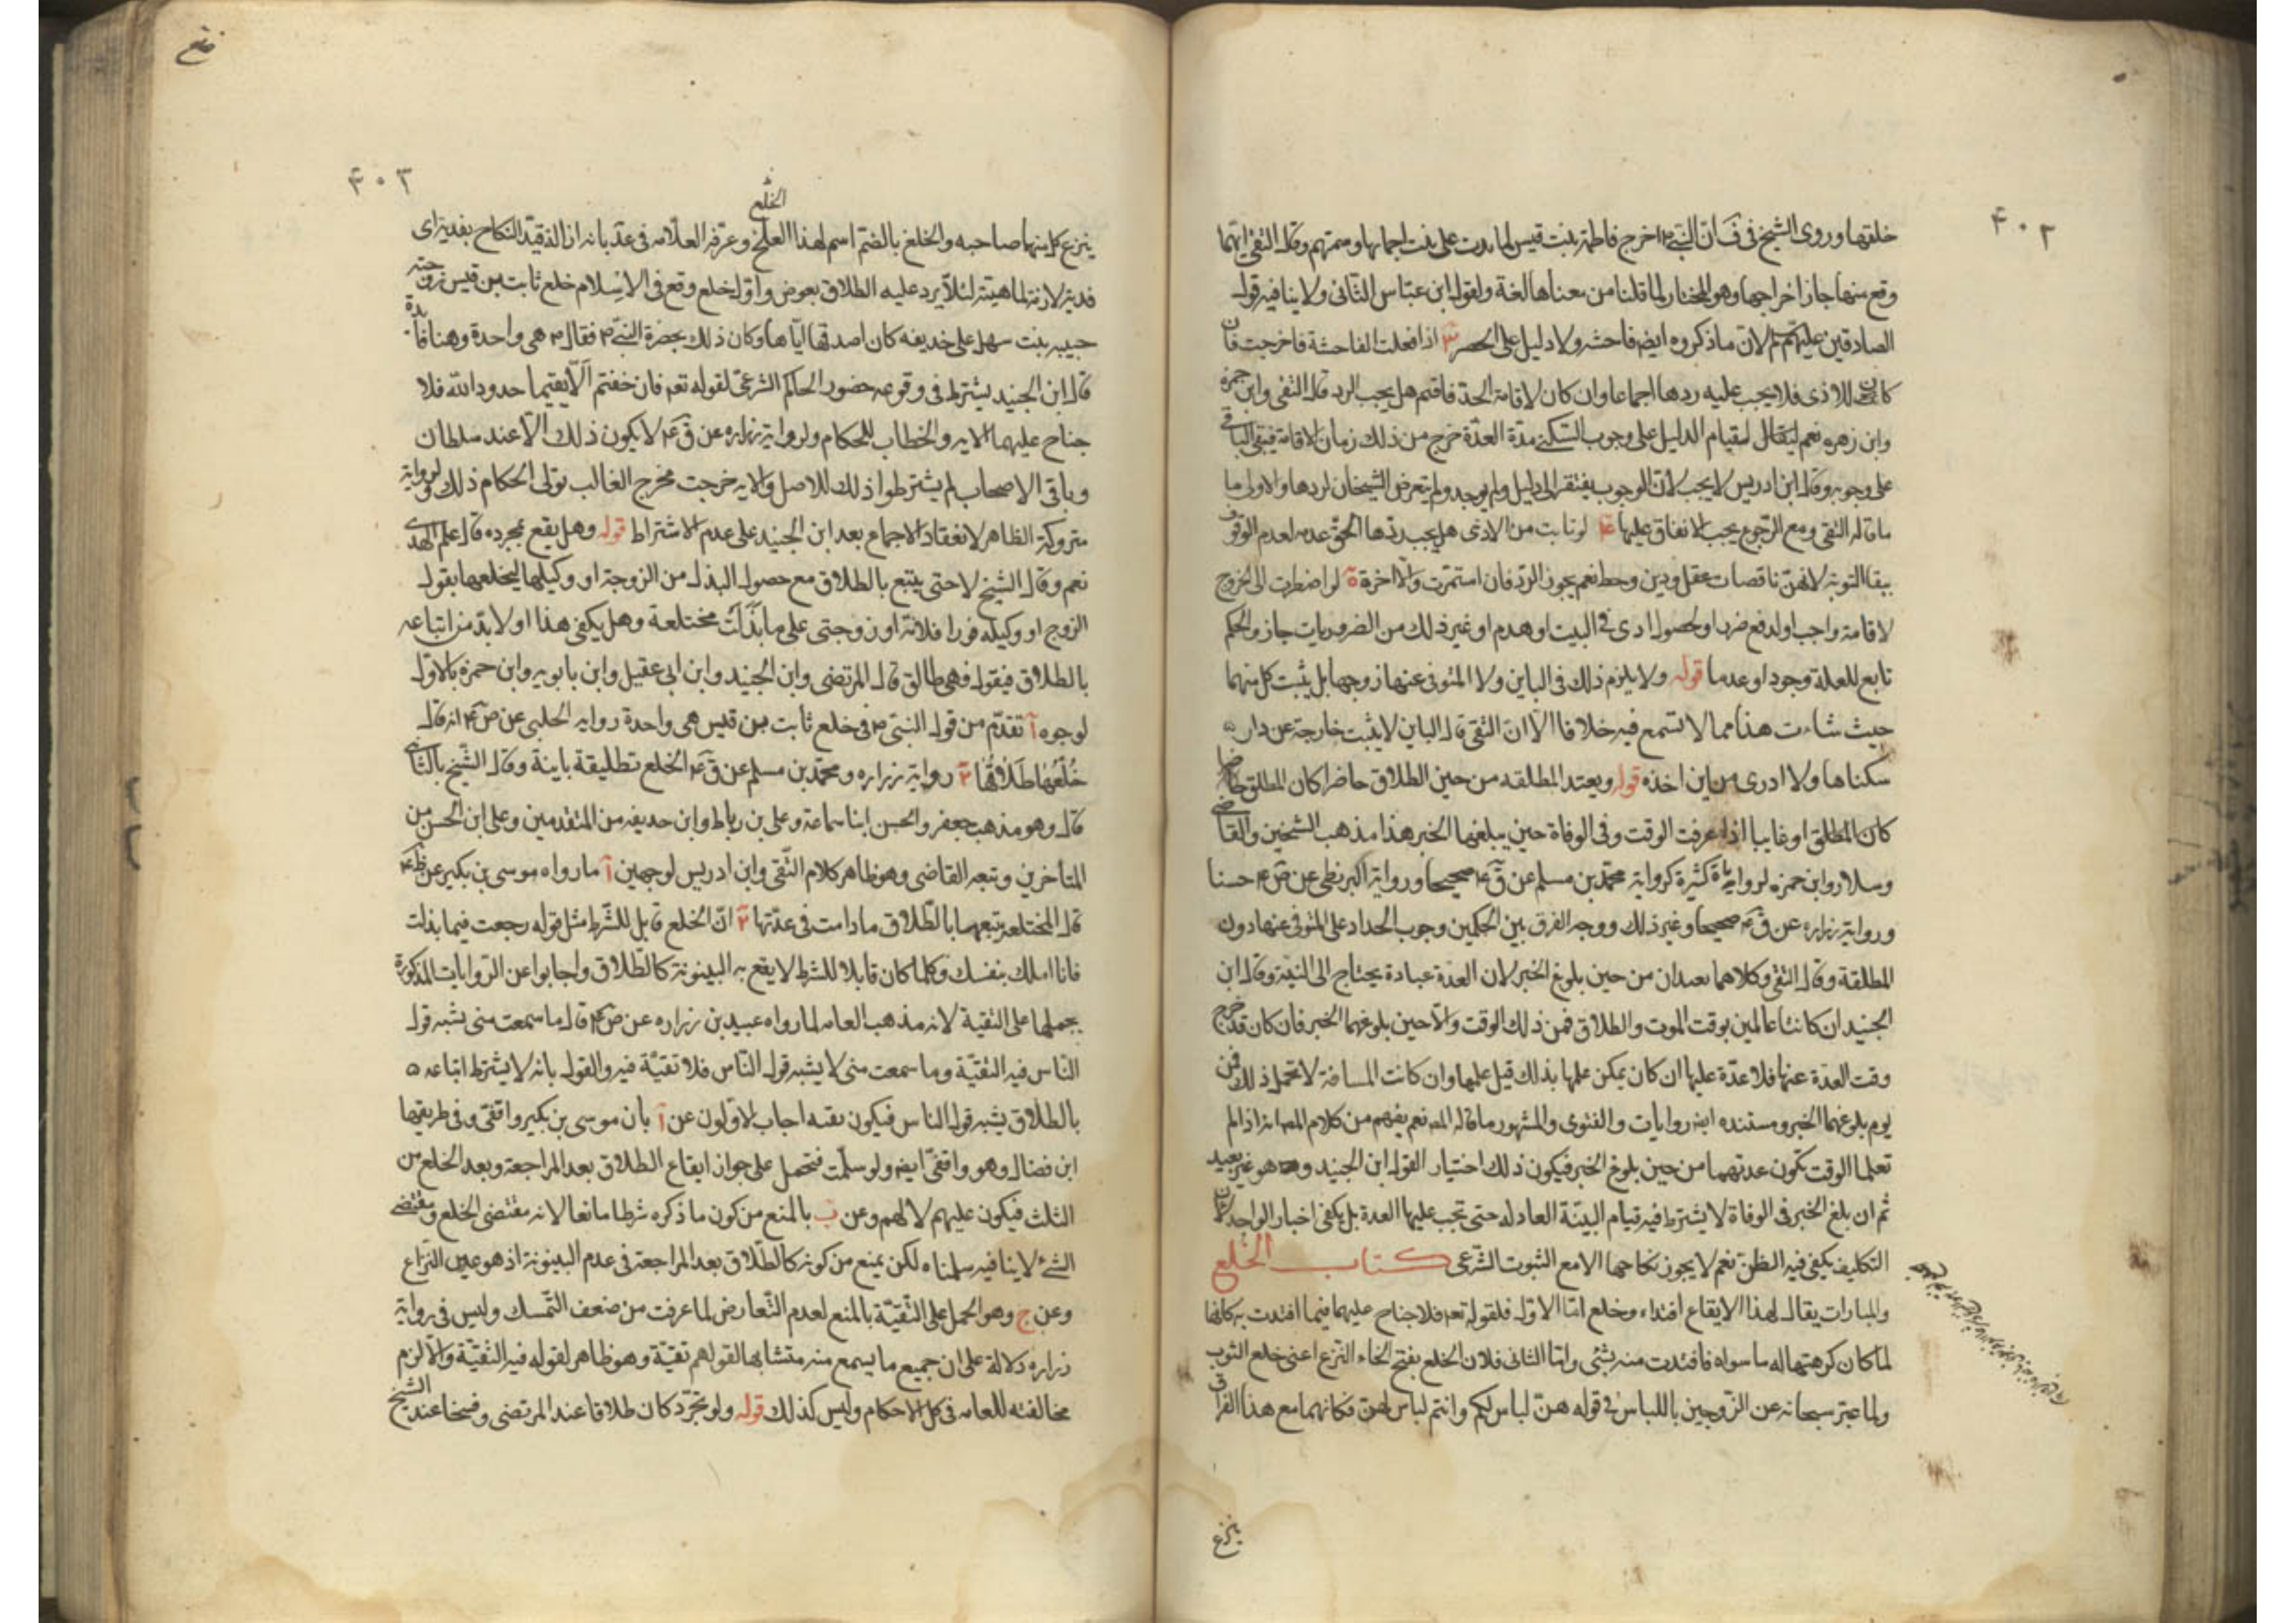 ۴۰۲
خلقها وروى الشيخ في ف ان النبي ص اخرج فاطمة بنت قيس لما بدت على بنت احمائها وشتمهم وقال التقي ايهما
وقع منها جاز اخراجها وهو المختار لما قلنا من معناها لغة ولقول ابن عباس الثاني ولا ينافيه قول
الصادقين عليهم لان ما ذكروه ايضا فاحشه ولا دليل على الحصر ٣ اذا فعلت الفاحشة فاخرجت فان
كان للاذى فلا يجب عليه ردها اجماعا وان كان لاقامة الحد فاقيم هل يجب الرد قال التقي وابن حمزة
وابن زهره نعم لقيام الدليل على وجوب السكنى مدة العدة خرج من ذلك زمان الاقامة فيبقى الباقي
على وجوبه وقال ابن ادريس لا يجب لان الوجوب يفتقر الى دليل ولم يوجد ولم يتعرض الشيخان لردها والاولى ما
ما قاله التقي ومع الرجوع يجب الانفاق عليها ۴ لو تابت من الاذى هل يجب ردها الحق عدمه لعدم الوثوق
ببقاء التوبة لانهن ناقصات عقل ودين وحظ نعم يجوز الرد فان استمرت والا اخرجت ۵ لو اضطرت الى الخروج
لاقامة واجب او لدفع ضرر او لحصول اذى في البيت او هدم او غير ذلك من الضروريات جاز والحكم
تابع للعلة وجودا وعدما قوله ولا يلزم ذلك في الباين ولا المتوفى عنها زوجها بل يثبت كل منهما
حيث شاءت هذا مما لا تسمع فيه خلافا الا ان التقي قال الباين لا يثبت خارجة عن دار
سكناها ولا ادرى من اين اخذه قوله ويعتد المطلقه من حين الطلاق حاضرا كان المطلق
كان المطلق او غايبا اذا عرفت الوقت وفي الوفاة حين يبلغها الخبر هذا مذهب الشيخين والقاضي
وسلار وابن حمزه لروايات كثيرة كرواية محمد بن مسلم عن ق ع صحيحا ورواية البزنطي عن ض ع حسنا
ورواية زراره عن ق ع صحيحا وغير ذلك ووجه الفرق بين الحكمين وجوب الحداد على المتوفى عنها دون
المطلقة وقال التقي وكلاهما يعتدان من حين بلوغ الخبر لان العدة عبادة يحتاج الى النية وقال ابن
الجنيد ان كانتا عالمين بوقت الموت والطلاق فمن ذلك الوقت والا حين بلوغهما الخبر فان كان قد خرج
وقت العدة عنها فلا عدة عليها ان كان يمكن علمها بذلك قبل علمها وان كانت المسافة لا تحتمل ذلك فمن
يوم بلوغها الخبر ومستنده ايضا روايات والفتوى والمشهور ما قاله المص نعم يفهم من كلام المص انه اذا لم
تعلما الوقت تكون عدتهما من حين بلوغ الخبر فيكون ذلك اختيار القول ابن الجنيد وهو غير بعيد
ثم ان بلغ الخبر في الوفاة لا يشترط فيه قيام البينة العادله حتى تجب عليها العدة بل يكفى اخبار الواحد لان
التكاليف يكفى فيه الظن نعم لا يجوز نكاحها الا مع الثبوت الشرعى كتاب الخلع
والمبارات يقال لهذا الايقاع افتداء وخلع اما الاول فلقوله تعه فلا جناح عليهما فيما افتدت به كانها
لما كان كرهتها له ما سواه فافتدت منه بشئ واما الثاني فلان الخلع بفتح الخاء النزع اعنى خلع الثوب
ولما عبر سبحانه عن الزوجين باللباس في قوله هن لباس لكم وانتم لباس لهن فكانهما مع هذا الفراق
ينزع
۴۰۳
الخلع
ينزع كل منهما صاحبه والخلع بالضم اسم لهذا وعرفه العلامه في عد بانه ازالة قيد النكاح بفدية اى
فدية لازمة لماهيته لئلا يرد عليه الطلاق بعوض واول خلع وقع في الاسلام خلع ثابت بن قيس زوجته
حبيبه بنت سهل على حديقه كان اصدقها اياها وكان ذلك بحضرة النبي ص فقال ص هي واحدة وهنا فائدة
قال ابن الجنيد يشترط في وقوعه حضور الحاكم الشرعى لقوله تعه فان خفتم الا يقيما حدود الله فلا
جناح عليهما الايه والخطاب للحكام ولرواية زراره عن ق ع لا يكون ذلك الا عند سلطان
وباقى الاصحاب لم يشترطوا ذلك للاصل والايه خرجت مخرج الغالب تولى الحكام ذلك والرواية
متروكة الظاهر لانعقاد الاجماع بعد ابن الجنيد على عدم الاشتراط قوله وهل يقع بمجرده قال علم الهدى
نعم وقال الشيخ لا حتى يتبع بالطلاق مع حصول البذل من الزوجة او وكيلها ليخلعها بقول
الزوج او وكيله فورا فلانة او زوجتى على ما بذلت مختلعة وهل يكفى هذا او لا بد من اتباعه
بالطلاق فيقول فهى طالق قال المرتضى وابن الجنيد وابن ابى عقيل وابن بابويه وابن حمزه بالاول
لوجوه آ تقدم من قول النبي ص في خلع ثابت بن قيس هي واحدة رواية الحلبى عن ص ع انه قال
خلعها طلاقها ٢ رواية زراره ومحمد بن مسلم عن ق ع الخلع تطليقة باينة وقال الشيخ بالثاني
قال وهو مذهب جعفر والحسن ابنا سماعة وعلى بن رباط وابن حذيفه من المتقدمين وعلى ابن الحسن من
المتاخرين وتبعه القاضى وهو ظاهر كلام التقي وابن ادريس لوجهين آ ما رواه موسى بن بكير عن ظم ع
قال المختلعة يتبعها بالطلاق ما دامت في عدتها ٢ ان الخلع قابل للشرط مثل قوله رجعت فيما بذلت
فانا املك بنفسك وكلما كان قابلا للشرط لا يقع به البينونة كالطلاق واجابوا عن الروايات المذكورة
بحملها على التقية لانه مذهب العامه لما رواه عبيد بن زراره عن ص ع قال ما سمعت منى يشبه قول
الناس فيه التقية وما سمعت منى لا يشبه قول الناس فلا تقية فيه والقول بانه لا يشترط اتباعه
بالطلاق يشبه قول الناس فيكون تقيه اجاب الاولون عن آ بان موسى بن بكير واقفى وفي طريقها
ابن فضال وهو واقفى ايضا ولو سلمت فتحمل على جواز ايقاع الطلاق بعد المراجعة وبعد الخلع من
الثلث فيكون عليهم لا لهم وعن ب بالمنع من كون ما ذكره شرطا مانعا لانه مقتضى الخلع ومقتضى
الشئ لا ينافيه سلمناه لكن يمنع من كونه كالطلاق بعد المراجعة في عدم البينونة اذ هو عين النزاع
وعن ج وهو الحمل على التقية بالمنع لعدم التعارض لما عرفت من ضعف التمسك وليس في رواية
زراره دلالة على ان جميع ما يسمع منه متشابها لقولهم تقية وهو ظاهر لقوله فيه التقية والا لزم
مخالفته للعامه في كل الاحكام وليس كذلك قوله ولو تجرد كان طلاقا عند المرتضى وفسخا عند الشيخ